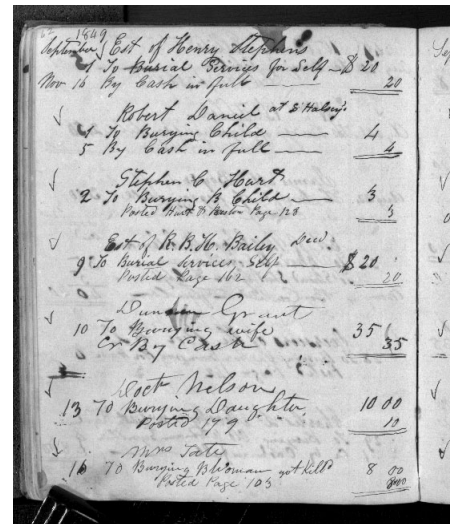 1849
September Est of Henry Stephens
1 To Burial Services for Self $20
Nov 16 By Cash in full 20
Robert Daniel at S Halsey's
4 To Burying Child 4
5 By Cash in full 4
Stephen C Hart
2 To Burying B Child 3
Posted Hart & Page 128 3
Est of R. B. H. Bailey Decd
9 To Burial Services Self $20
Posted Page 162 20
Duncan Grant
10 To Burying wife 35
Cr By Cash 35
Doct Nelson
13 To Burying Daughter 10 00
Posted 179 10
Mrs Tate
16 To Burying B Woman got killd 8 00
Posted Page 103